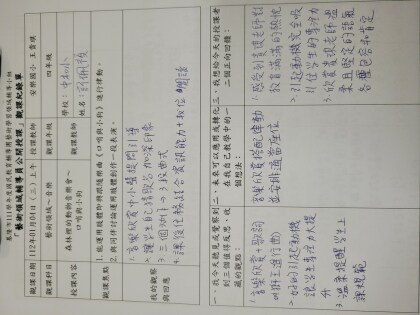 基隆市111學年度國民教育輔導團藝術學習領域輔導小組
「藝術領域輔導員公開授課」觀課紀錄單
觀課日期 112年01月04日（三）上午 授課教師 安樂國小 王貴琪
觀課科目 藝術領域～音樂 觀課年級 四年級
授課內容 森林裡的動物音樂會～口哨與小狗 觀課教師 學校：中和小 姓名：
觀課焦點 1.能運用肢體即興跟隨樂曲《口哨與小狗》進行律動。
2.與同伴討論運用肢體創作一段表演。
我的觀察與回應
1. 音樂欣賞中小聲提問引導
2. 讓學生自己猜歌名加深印象
3. 三個動作→3段曲式
4. 課後任務結合資訊能力+數位閱讀
一、我今天聽見或覺察到三個值得反思、收藏的觀點：
1. 音樂欣賞+歌詞 叫獅王進行曲
2. 好的引起動機讓學生專注力大提升
3. 溫柔提醒學生上課規範
二、未來可以應用或轉化在我自己教學中的一個想法：
音樂欣賞搭配律動並安排適當座位
三、我想給今天的授課者二個正向回饋：
1. 感受到貴琪老師對教育滿滿的熱忱
2. 引起動機完全吸引住學生的專注力
3. 欣賞貴琪老師溫柔且堅定的語氣各種包容和肯定